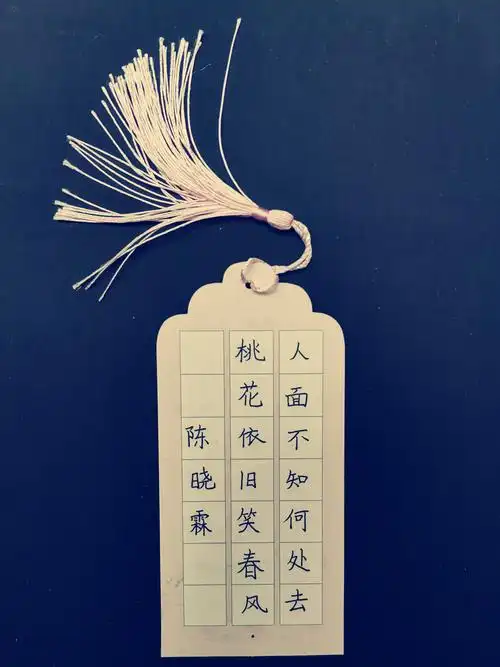 人面不知何处去
桃花依旧笑春风
陈晓霖